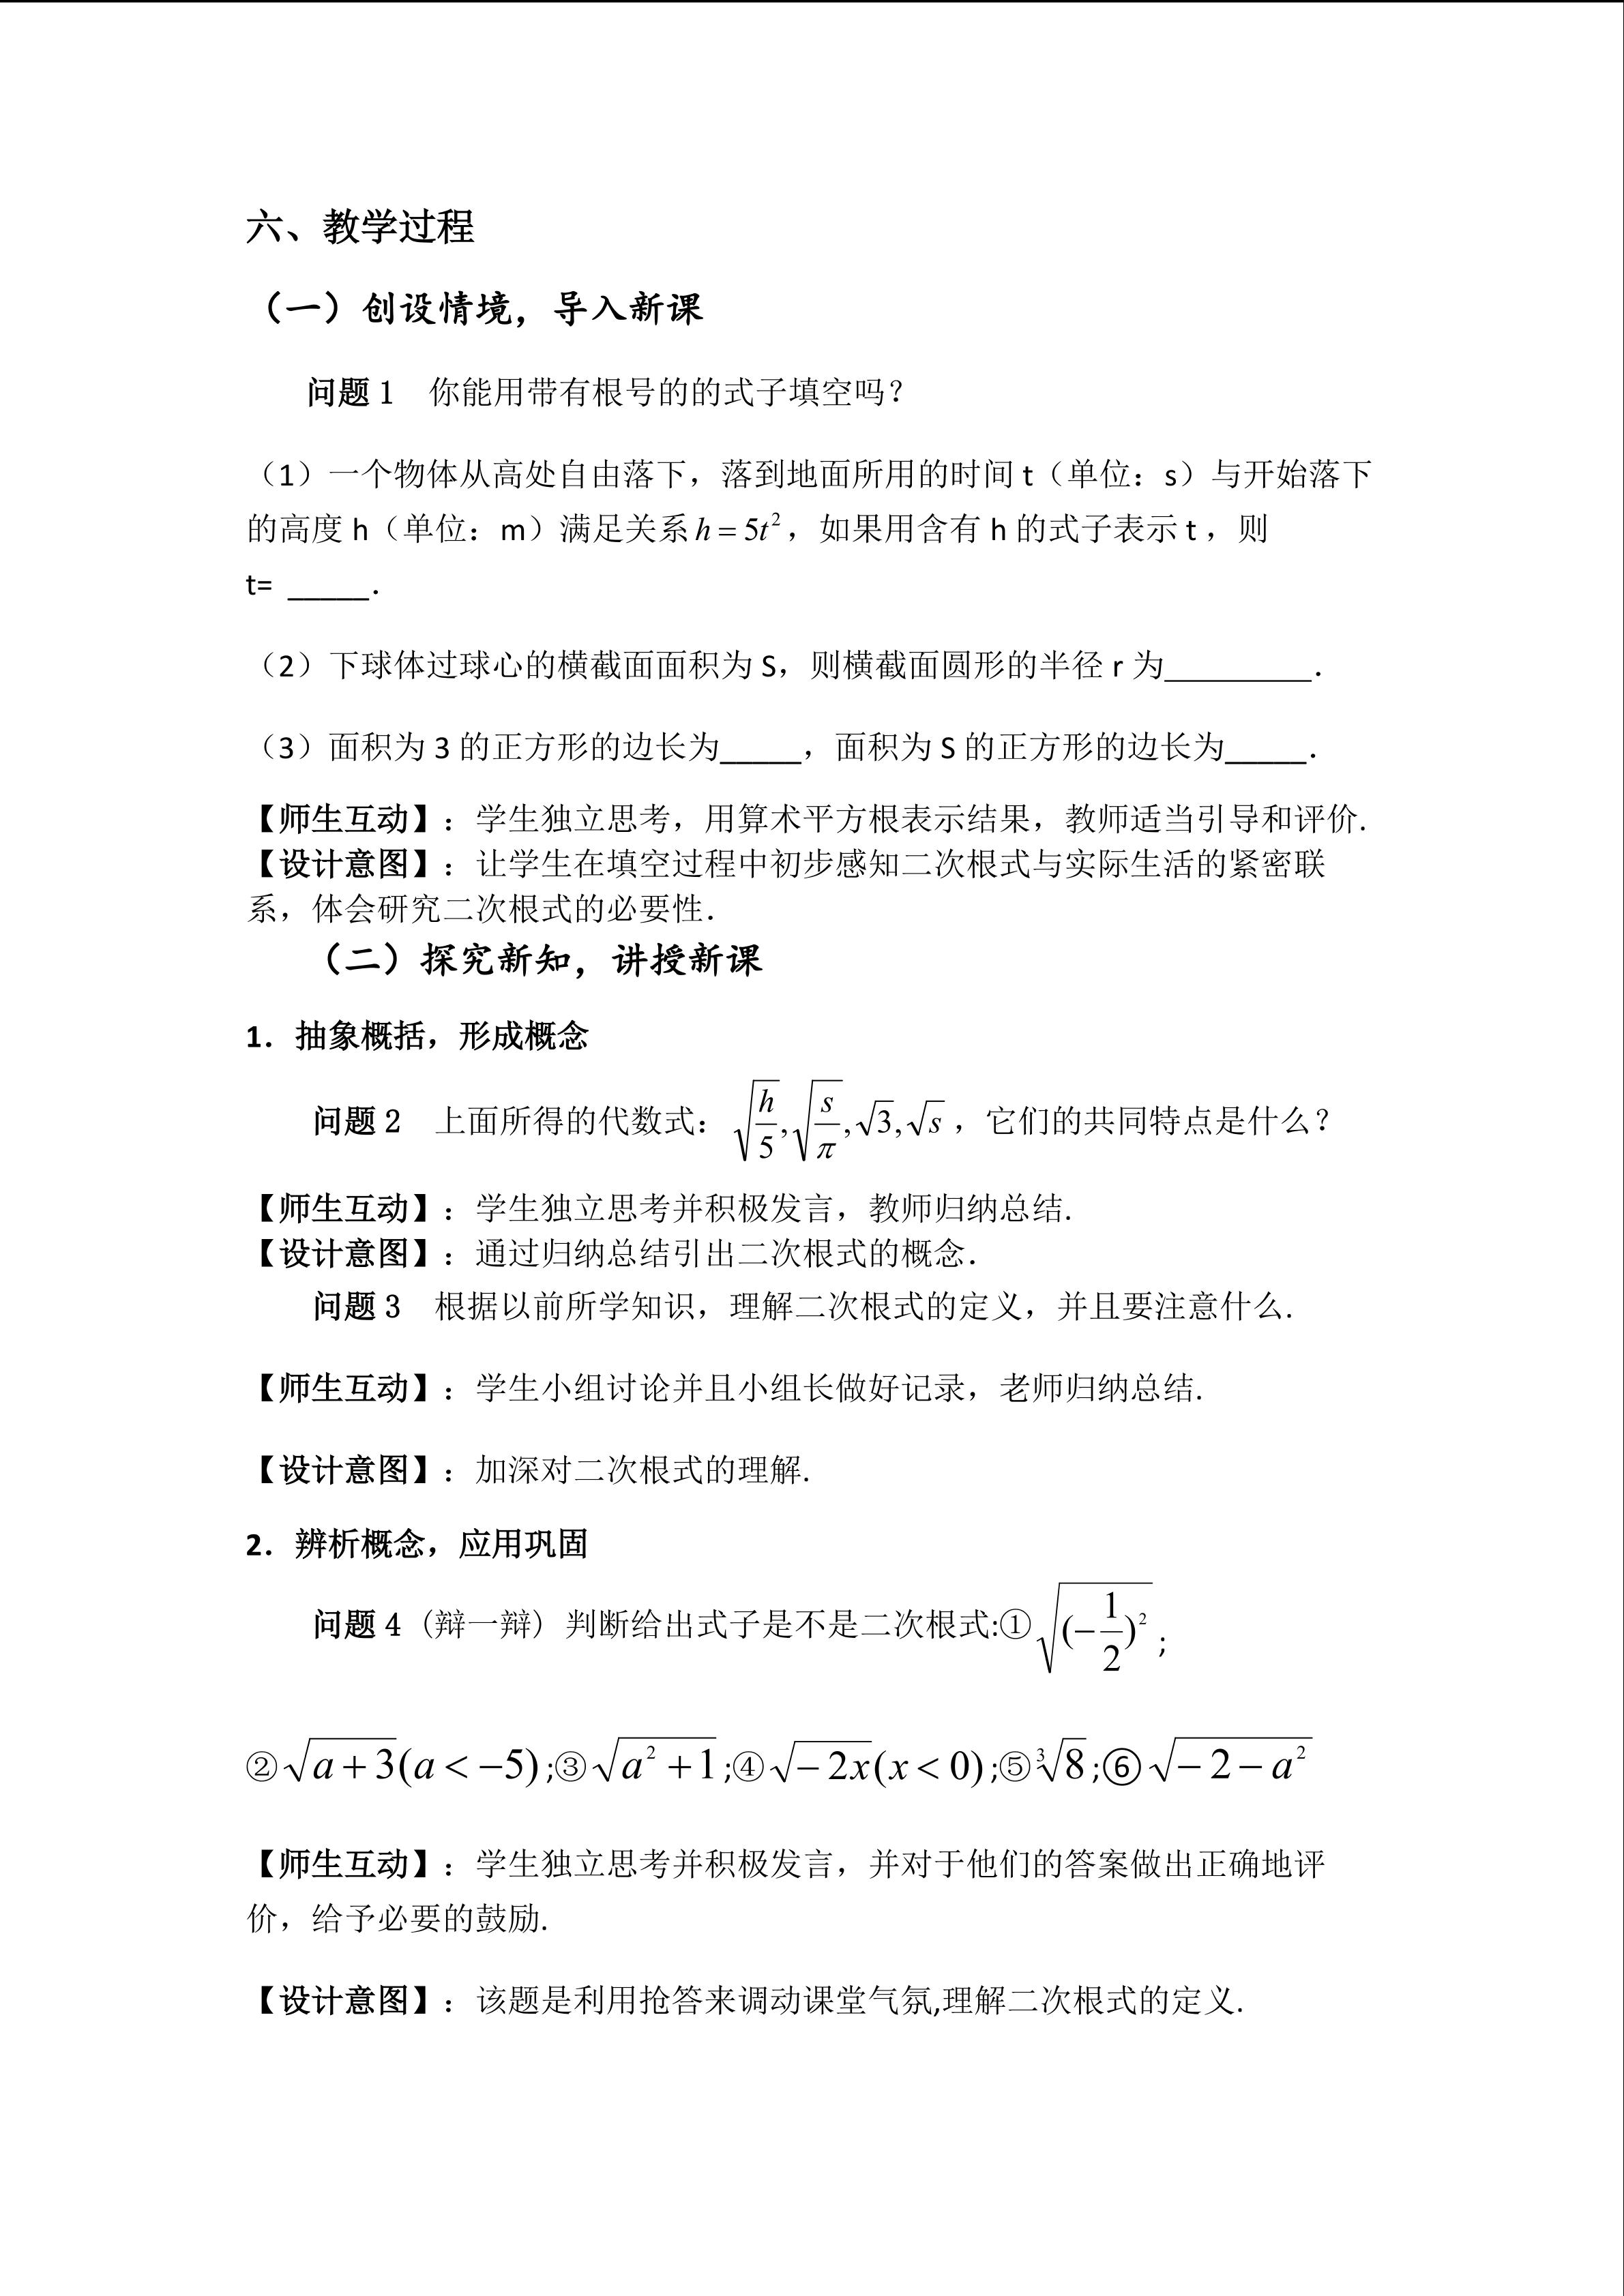 六、教学过程
（一）创设情境，导入新课
问题1 你能用带有根号的的式子填空吗？
（1）一个物体从高处自由落下，落到地面所用的时间 t（单位：s）与开始落下
的高度 h（单位：m）满足关系 h = 5t²，如果用含有 h 的式子表示 t ，则
t= _____．
（2）下球体过球心的横截面面积为 S，则横截面圆形的半径 r 为_________．
（3）面积为 3 的正方形的边长为_____，面积为 S 的正方形的边长为_____．
【师生互动】：学生独立思考，用算术平方根表示结果，教师适当引导和评价.
【设计意图】：让学生在填空过程中初步感知二次根式与实际生活的紧密联
系，体会研究二次根式的必要性．
（二）探究新知，讲授新课
1．抽象概括，形成概念
问题2 上面所得的代数式：√(h/5),√(s/π),√3,√s ，它们的共同特点是什么？
【师生互动】：学生独立思考并积极发言，教师归纳总结.
【设计意图】：通过归纳总结引出二次根式的概念．
问题3 根据以前所学知识，理解二次根式的定义，并且要注意什么.
【师生互动】：学生小组讨论并且小组长做好记录，老师归纳总结.
【设计意图】：加深对二次根式的理解.
2．辨析概念，应用巩固
问题4 (辩一辩) 判断给出式子是不是二次根式:①√((−1/2)²) ;
②√(a+3)(a<−5);③√(a²+1);④√(−2x)(x<0);⑤³√8;⑥√(−2−a²)
【师生互动】：学生独立思考并积极发言，并对于他们的答案做出正确地评
价，给予必要的鼓励.
【设计意图】：该题是利用抢答来调动课堂气氛,理解二次根式的定义.